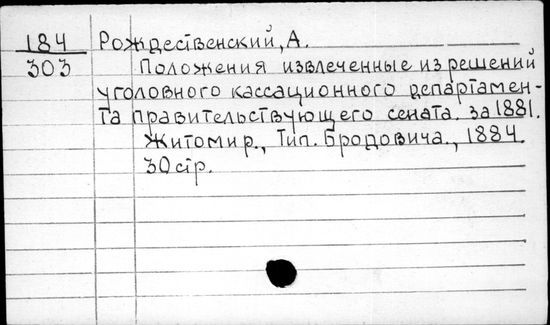 184 Рождественский, А.
303 Положения извлеченные из решений
уголовного кассационного департамен-
та правительствующего сената. за 1881.
Житомир., Тип. Бродовича., 1884.
30 стр.